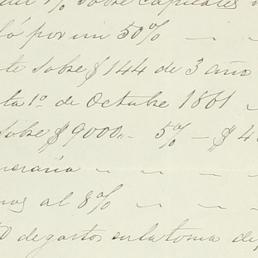 1% sobre capitales
por un 50%
te sobre $144 de 3 año
ta 1º de Octubre 1861
sobre $9000 - 5% - $4
neraria
al 8%
de gastos en la toma de